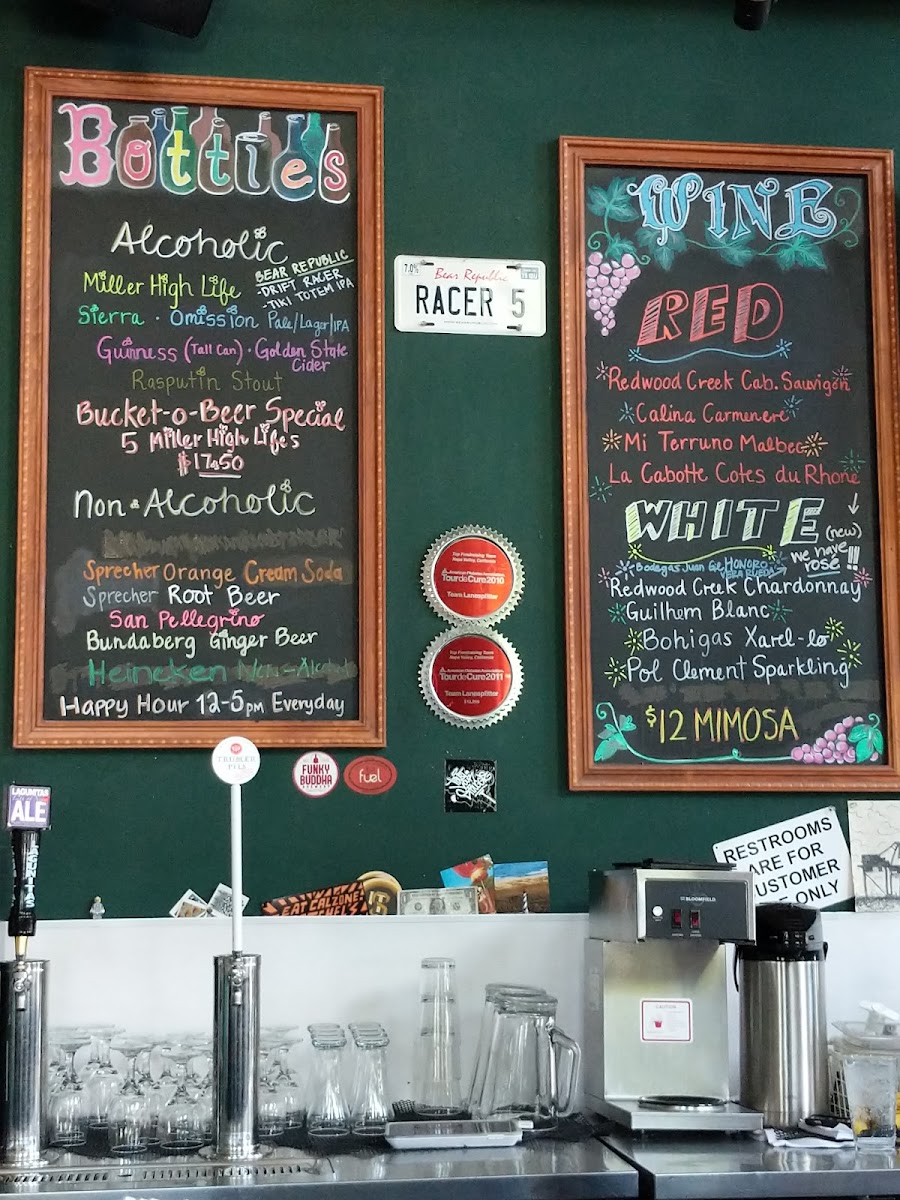 Bottles
Alcoholic
Miller High Life
BEAR REPUBLIC
-DRIFT RACER
-TIKI TOTEM IPA
Sierra · Omission Pale/Lager/IPA
Guinness (Tall Can) · Golden State
Cider
Rasputin Stout
Bucket-o-Beer Special
5 Miller High Lifes
$17.50
Non-Alcoholic
Sprecher Orange Cream Soda
Sprecher Root Beer
San Pellegrino
Bundaberg Ginger Beer
Heineken Non-Alcohol
Happy Hour 12-5pm Everyday
7.0%
Bear Republic
RACER 5
WINE
RED
Redwood Creek Cab. Sauvigon
Calina Carmenere
Mi Terruno Malbec
La Cabotte Cotes du Rhone
WHITE
(new)
we have
rosé !!
Bodegas Juan Gil HONORO
VERA RUEDA
Redwood Creek Chardonnay
Guilhem Blanc
Bohigas Xarel-lo
Pol Clement Sparkling
$12 MIMOSA
Top Fundraising Team
Napa Valley, California
TourdeCure2010
Team Lanesplitter
Top Fundraising Team
Napa Valley, California
TourdeCure2011
Team Lanesplitter
TRUMER
PILS
FUNKY
BUDDHA
BREWERY
fuel
LAGUNITAS
ALE
LAGUNITAS
EAT CALZONE
RESTROOMS
ARE FOR
CUSTOMER
ONLY
BLOOMFIELD
CAUTION